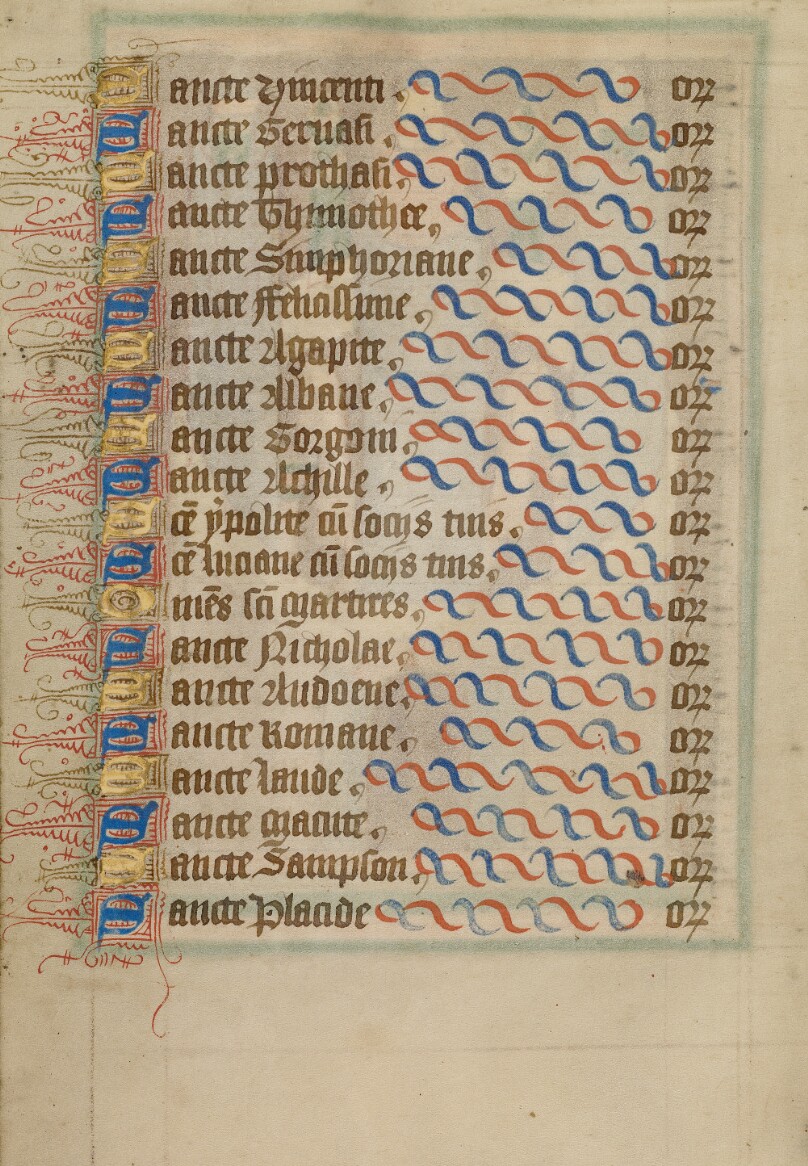 Sancte Vincenti. or
Sancte Geruasi. or
Sancte prothasi. or
Sancte Thimothee. or
Sancte Simphoriane. or
Sancte ffelicissime. or
Sancte Agapite. or
Sancte Albane. or
Sancte Gorgoni. or
Sancte Achille. or
Scē ypolite cū socijs tuis. or
Scē luciane cū socijs tuis. or
Omēs scī Martires. or
Sancte Nicholae. or
Sancte Audoene. or
Sancte Romane. or
Sancte laude. or
Sancte Macute. or
Sancte Sampson. or
Sancte Placide or